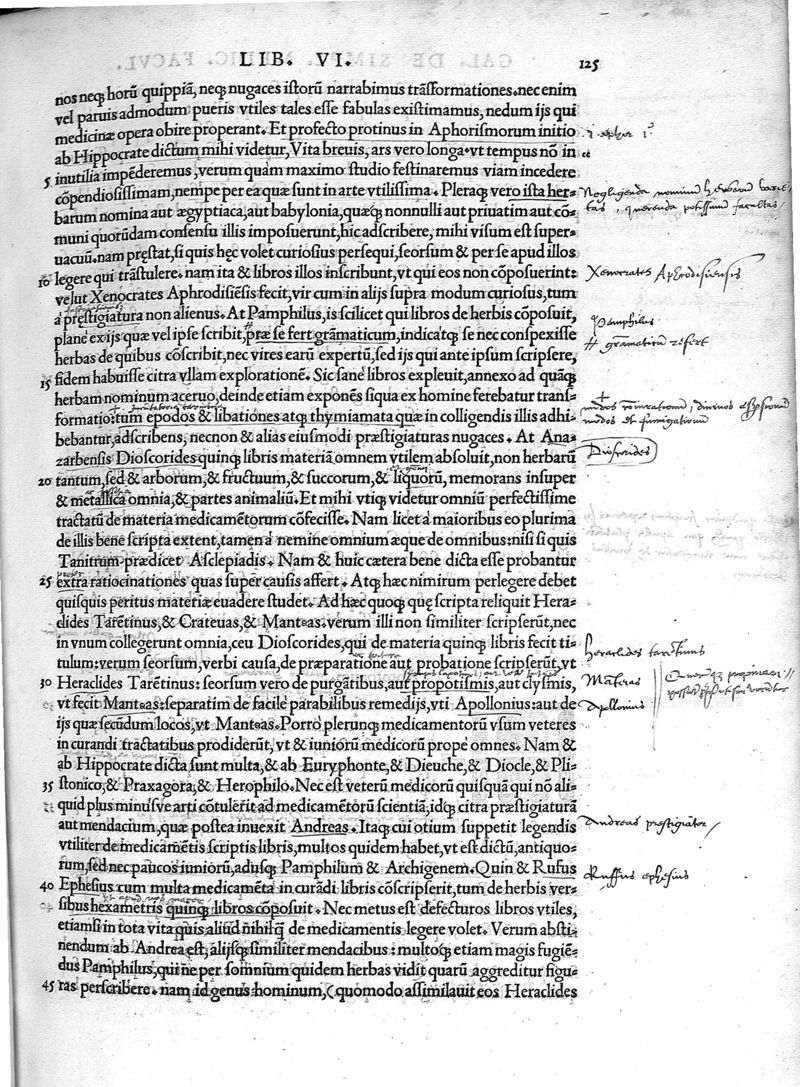 LIB. VI.
125
nos neq; horũ quippiã, neq; nugaces istorũ narrabimus trãsformationes. nec enim
vel paruis admodum pueris vtiles tales esse fabulas existimamus, nedum ijs qui
medicinæ opera obire properant. Et profecto protinus in Aphorismorum initio
ab Hippocrate dictum mihi videtur, Vita breuis, ars vero longa. vt tempus nõ in
5 inutilia impẽderemus, verum quàm maximo studio festinaremus viam incedere
cõpendiosissimam, nempe per ea quæ sunt in arte vtilissima. Pleraq; vero ista her-
Negligenda nominum herbarum varie-
barum nomina aut ægyptiaca, aut babylonia, quæq; nonnulli aut priuatim aut cõ-
tas, querenda potissimum facultas
muni quorũdam consensu illis imposuerunt, hic adscribere, mihi visum est super-
uacuũ. nam pręstat, si quis hęc volet curiosius persequi, seorsum & per se apud illos
10 legere qui trãstulere. nam ita & libros illos inscribunt, vt qui eos non cõposuerint:
Xenocrates Aphrodisiensis
velut Xenocrates Aphrodisiẽsis fecit, vir cum in alijs supra modum curiosus, tum
à pręstigiatura non alienus. At Pamphilus, is scilicet qui libros de herbis cõposuit,
Pamphilus
plane ex ijs quæ vel ipse scribit, præ se fert grãmaticum, indicatq; se nec conspexisse
# gramaticum refert
herbas de quibus cõscribit, nec vires earũ expertũ, sed ijs qui ante ipsum scripsere,
15 fidem habuisse citra vllam explorationẽ. Sic sanè libros expleuit, annexo ad quãq;
herbam nominum aceruo, deinde etiam exponẽs siqua ex homine ferebatur trans-
formatio: tum epodos & libationes atq; thymiamata quæ in colligendis illis adhi-
bebantur, adscribens, necnon & alias eiusmodi præstigiaturas nugaces. At Ana-
zarbensis Dioscorides quinq; libris materiã omnem vtilem absoluit, non herbarũ
Dioscorides
20 tantum, sed & arborum, & fructuum, & succorum, & liquorũ, memorans insuper
& metallica omnia, & partes animaliũ. Et mihi vtiq; videtur omniũ perfectissime
tractatũ de materia medicamẽtorum cõfecisse. Nam licet à maioribus eo plurima
de illis bene scripta extent, tamen à nemine omnium æque de omnibus: nisi si quis
Tanitrum prædicet Asclepiadis. Nam & huic cætera bene dicta esse probantur
25 extra ratiocinationes quas super causis affert. Atq; hæc nimirum perlegere debet
quisquis peritus materiæ euadere studet. Ad hæc quoq; quę scripta reliquit Hera-
clides Tarẽtinus, & Crateuas, & Mantias. verum illi non similiter scripserũt, nec
in vnum collegerunt omnia, ceu Dioscorides, qui de materia quinq; libris fecit ti-
tulum: verum seorsum, verbi causa, de præparatione aut probatione scripserũt, vt
Heraclides tarentinus
30 Heraclides Tarẽtinus: seorsum vero de purgãtibus, aut propotismis, aut clysmis,
vt fecit Mantias: separatim de facile parabilibus remedijs, vti Apollonius: aut de
Apollonius
ijs quæ secũdum locos, vt Mantias. Porrò plerunq; medicamentorũ vsum veteres
in curandi tractatibus prodiderũt, vt & iuniorũ medicorũ prope omnes. Nam &
ab Hippocrate dicta sunt multa, & ab Euryphonte, & Dieuche, & Diocle, & Pli-
35 stonico, & Praxagora, & Herophilo. Nec est veterũ medicorũ quisquã qui nõ ali-
quid plus minusve arti cõtulerit ad medicamẽtorũ scientiã, idq; citra præstigiaturã
aut mendacium, quæ postea inuexit Andreas. Itaq; cui otium suppetit legendis
Andreas prestigiator
vtiliter de medicamẽtis scriptis libris, multos quidem habet, vt est dictũ, antiquo-
rum, sed nec paucos iuniorũ, adusq; Pamphilum & Archigenem. Quin & Rufus
Ruffus ephesius
40 Ephesius cum multa medicamẽta in curãdi libris cõscripserit, tum de herbis ver-
sibus hexametris quinq; libros cõposuit. Nec metus est defecturos libros vtiles,
etiamsi in tota vita quis aliud nihil q̃ de medicamentis legere volet. Verum absti-
nendum ab Andrea est, alijsq; similiter mendacibus: multoq; etiam magis fugiẽ-
dus Pamphilus, qui ne per somnium quidem herbas vidit quarũ aggreditur figu-
45 ras perscribere. nam id genus hominum, (quomodo assimilauit eos Heraclides